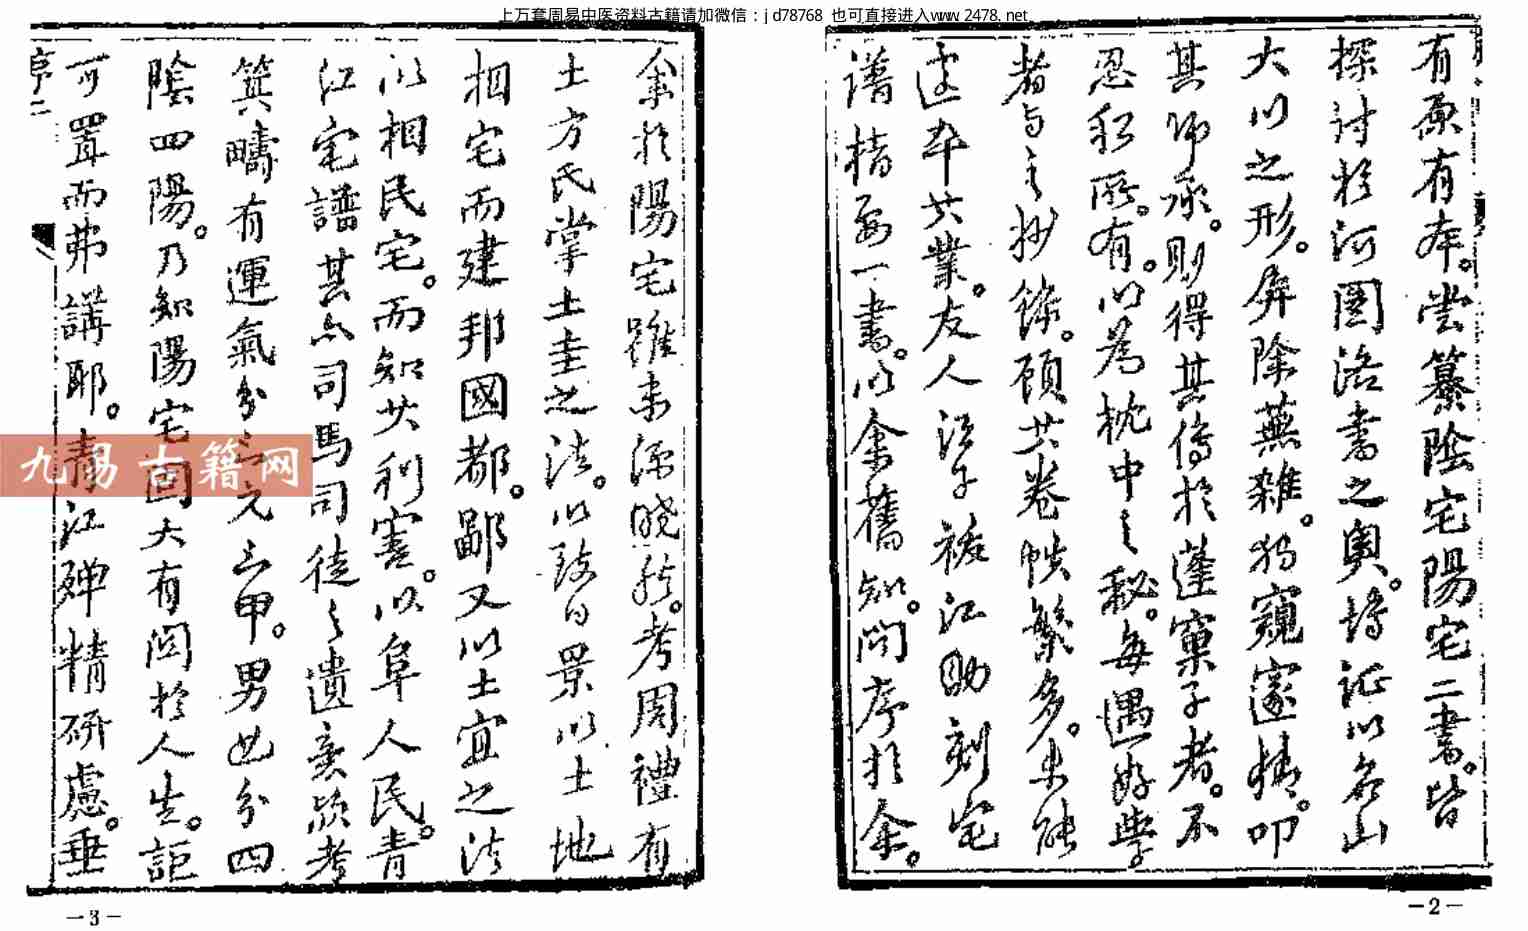 上万套周易中医资料古籍请加微信：jd78768 也可直接进入www.2478.net
有原有本。嘗纂陰宅陽宅二書。皆
探討於河圖洛書之奧。博証以名山
大川之形。屏除蕪雜。獨窺邃精。叩
其師承。則得其傳於蓬窠子者。不
忍私所有。以為枕中之秘。每遇好學
者与之抄錄。顧其卷帙繁多。未能
述卒其業。友人 江助刻宅
譜指要一書。以余舊知。問序於余。
余於陽宅雖未深曉然。考周禮有
土方氏掌土圭之法。以致日景以土地
相宅而建邦國都鄙。又以土宜之法
以相民宅。而知其利害。以阜人民。青
江宅譜其亦司馬司徒之遺意歟考
箕疇有運氣分三元三甲。男女分四
陰四陽。乃知陽宅固大有関於人生。詎
可置而弗講耶。青江殫精研慮。垂
序二
九易古籍网
—3—
—2—